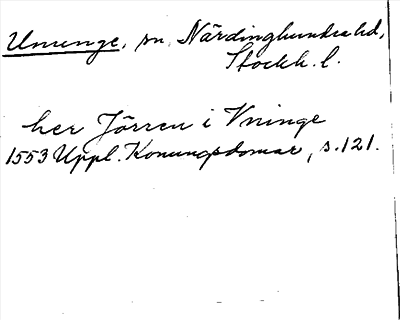 Ununge, sn, Närdinghundra hd,
Stockh. l.
her Jörren i Vninge
1553 Uppl. Konungsdomar, s. 121.